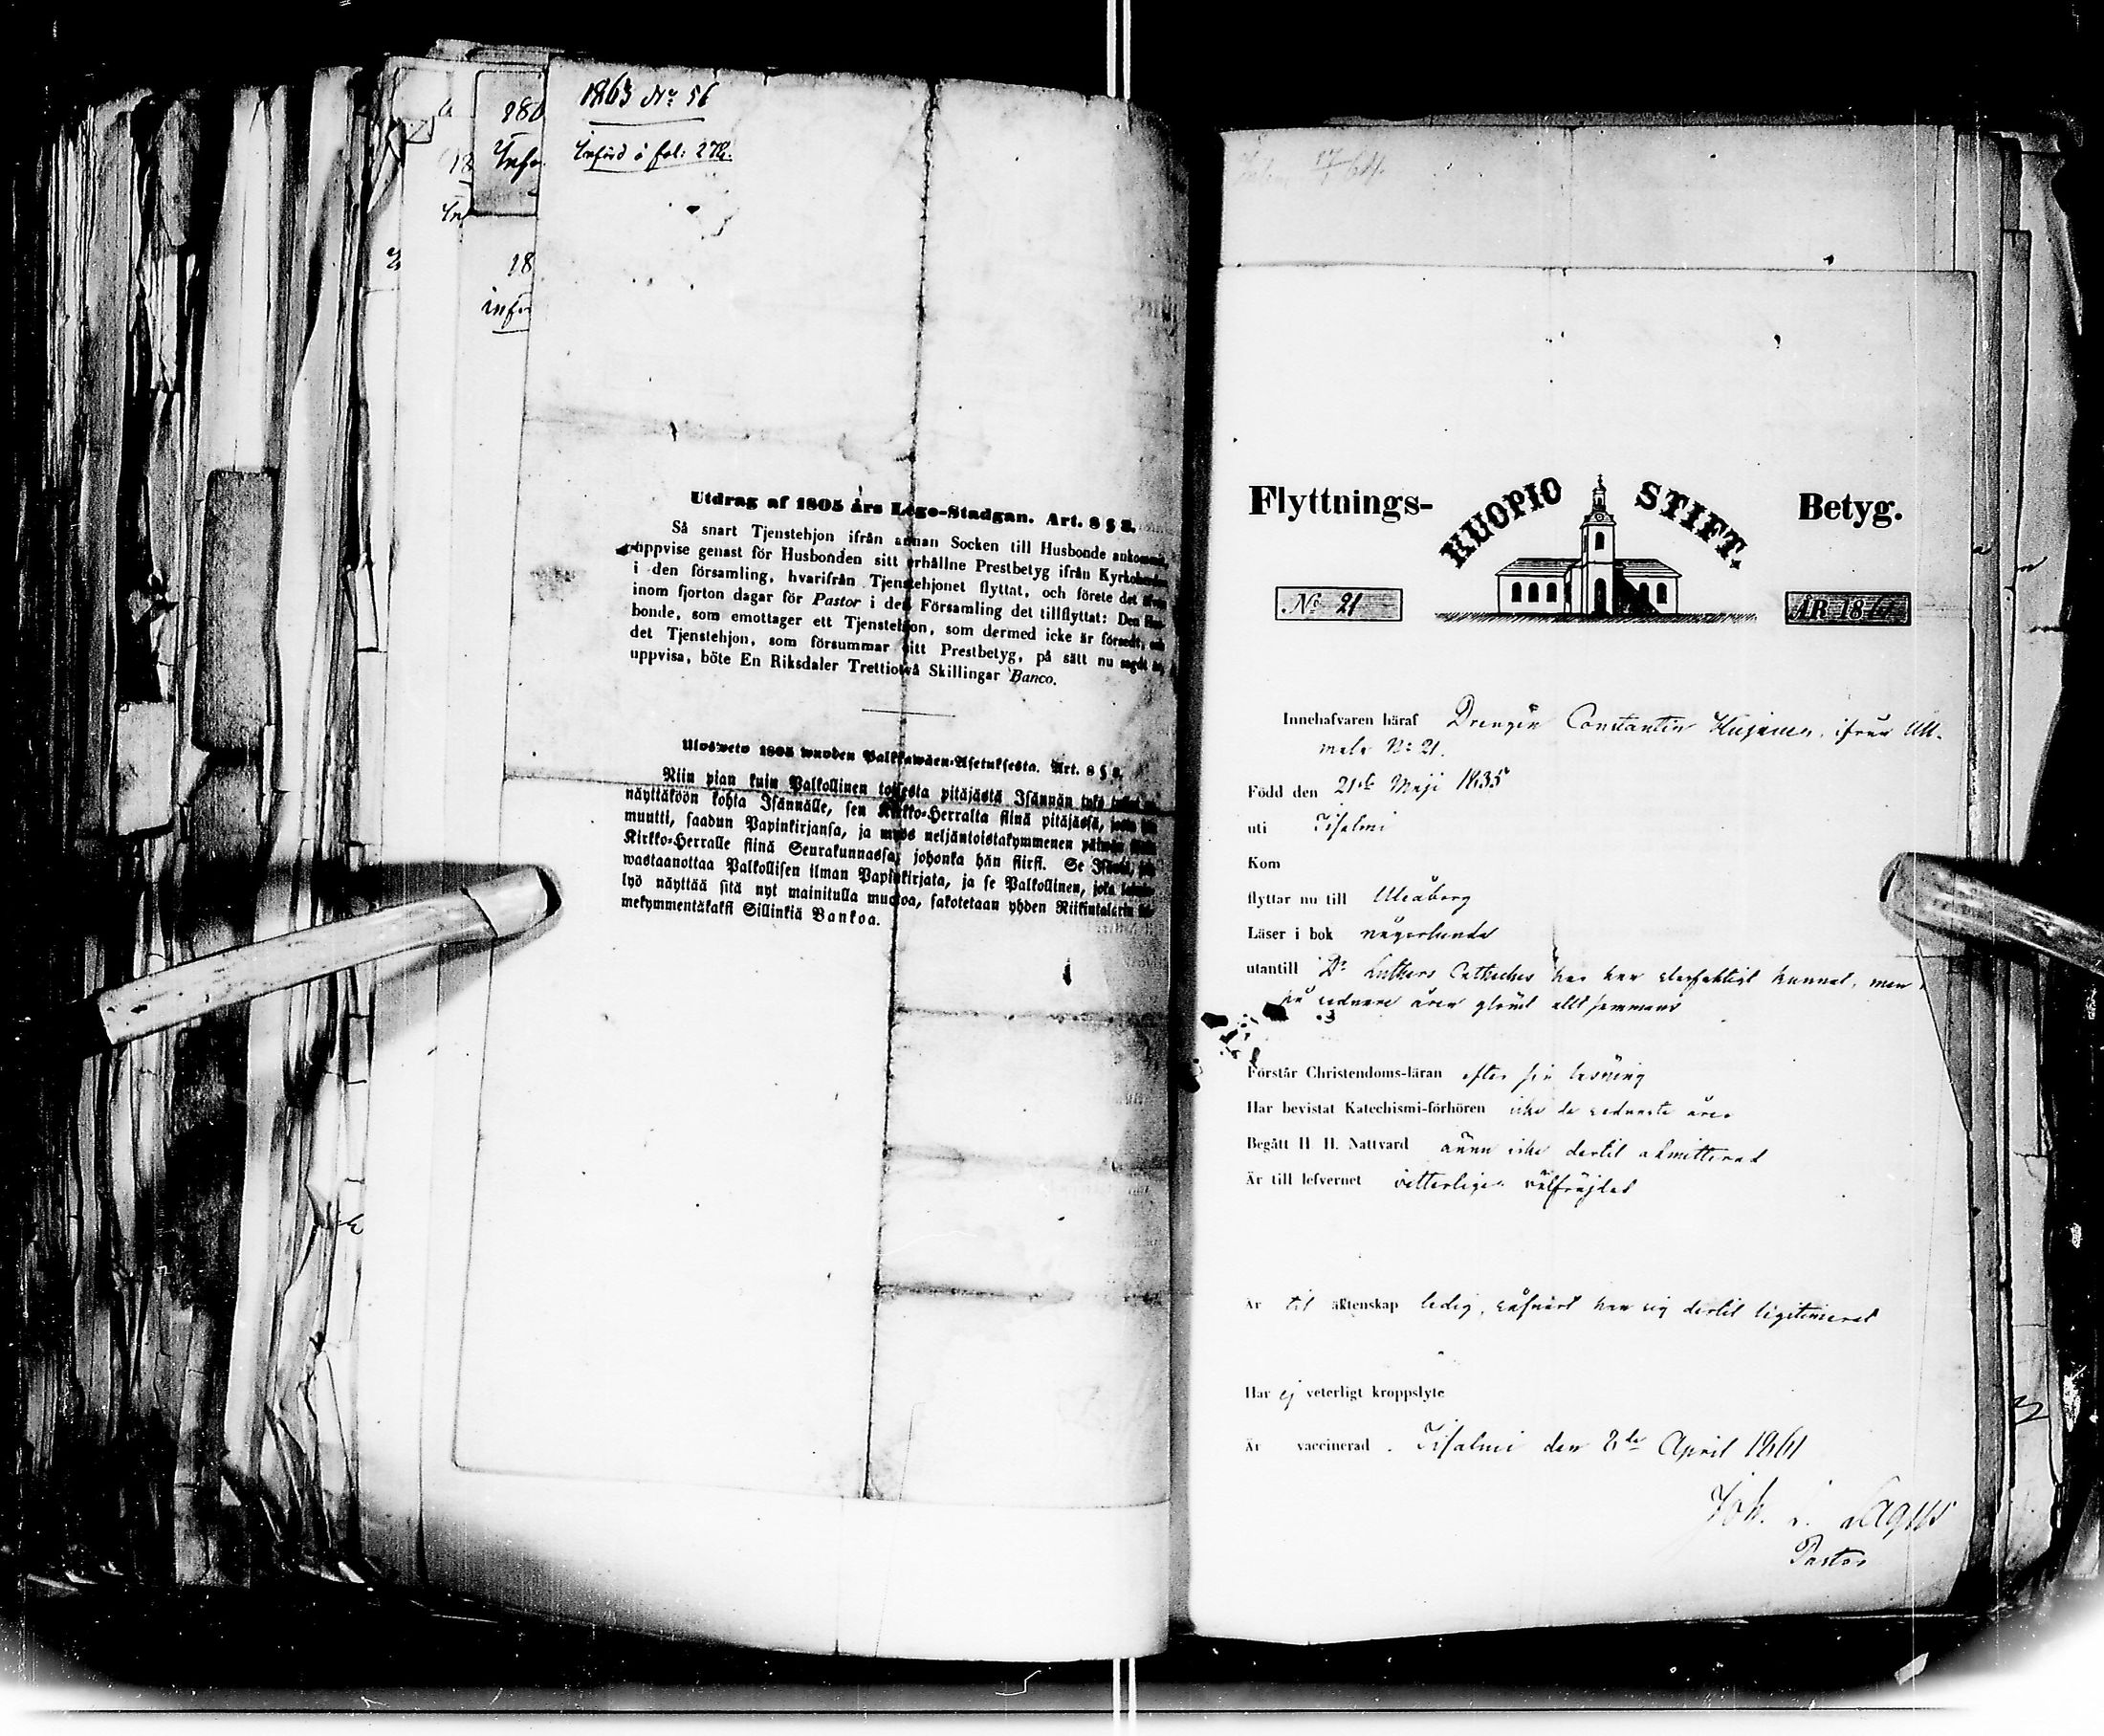 1863 No 56
Införd å fol: 278.
280
Infö
18
inför
Utdrag af 1805 års Lego-Stadgan. Art. 8 § 2.
Så snart Tjenstehjon ifrån annan Socken till Husbonde ankommit,
uppvise genast för Husbonden sitt erhållne Prestbetyg ifrån Kyrkoherden
i den församling, hvarifrån Tjenstehjonet flyttat, och förete det
inom fjorton dagar för Pastor i den Församling det tillflyttat: Den Hus-
bonde, som emottager ett Tjenstehjon, som dermed icke är försedt, och
det Tjenstehjon, som försummar sitt Prestbetyg, på sätt nu sagdt är,
uppvisa, böte En Riksdaler Trettiotvå Skillingar Banco.
Ulosweto 1805 wuoden Palkkawäen-Asetuksesta. Art. 8 § 2.
Niin pian kuin Palkollinen toisesta pitäjästä Isännän tykö
näyttäköön kohta Isännälle, sen Kirkko-Herralta siinä pitäjässä,
muutti, saadun Papinkirjansa, ja myös neljäntoistakymmenen päiwän
Kirkko-Herralle siinä Seurakunnassa, johonka hän siirsi. Se
wastaanottaa Palkollisen ilman Papinkirjata, ja se Palkollinen, joka
lyö näyttää sitä nyt mainitulla muotoa, sakotetaan yhden Riikintalarin
mekymmentäkaksi Sillinkiä Bankoa.
17/1 64.
Flyttnings- KUOPIO STIFT. Betyg.
No 21 ÅR 1861
Innehafvaren häraf Drengen Constantin Hujanen, ifrån
mala No 21.
Född den 21de Maji 1835
uti Iisalmi
Kom
flyttar nu till Uleåborg
Läser i bok någorlunda
utantill Dr Luthers Catheches har han kunnat, men
på sednare åren glömt allt sammans
Förstår Christendoms-läran efter sin läsning
Har bevistat Katechismi-förhören icke de sednaste åren
Begått H H. Nattvard ännu icke dertil admitterad
Är till lefvernet vitterligen välfräjdad
Är til äktenskap ledig, såframt han sig dertil legitimerat
Har ej veterligt kroppslyte
Är vaccinerad. Iisalmi den 8de April 1861
Joh. Lagus
Pastor